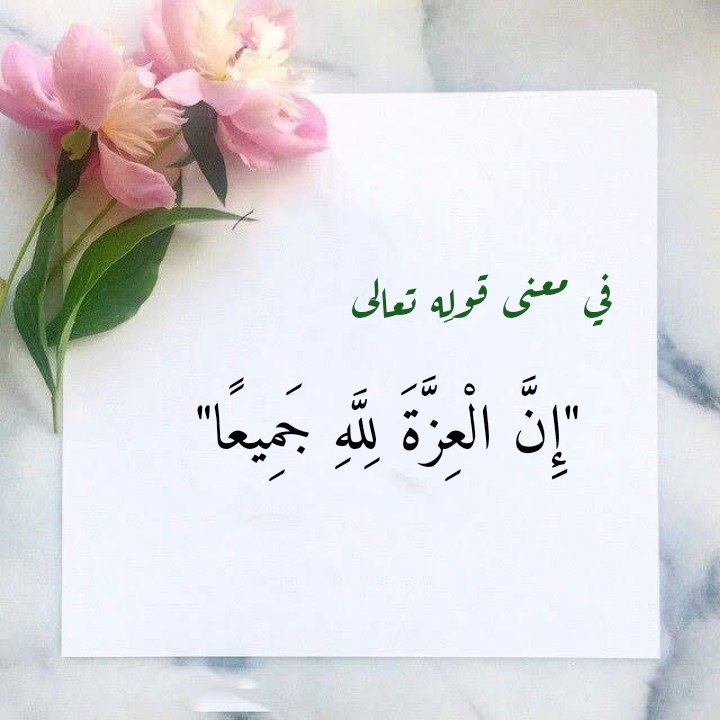 في معنى قولِه تعالى
"إِنَّ الْعِزَّةَ لِلَّهِ جَمِيعًا"